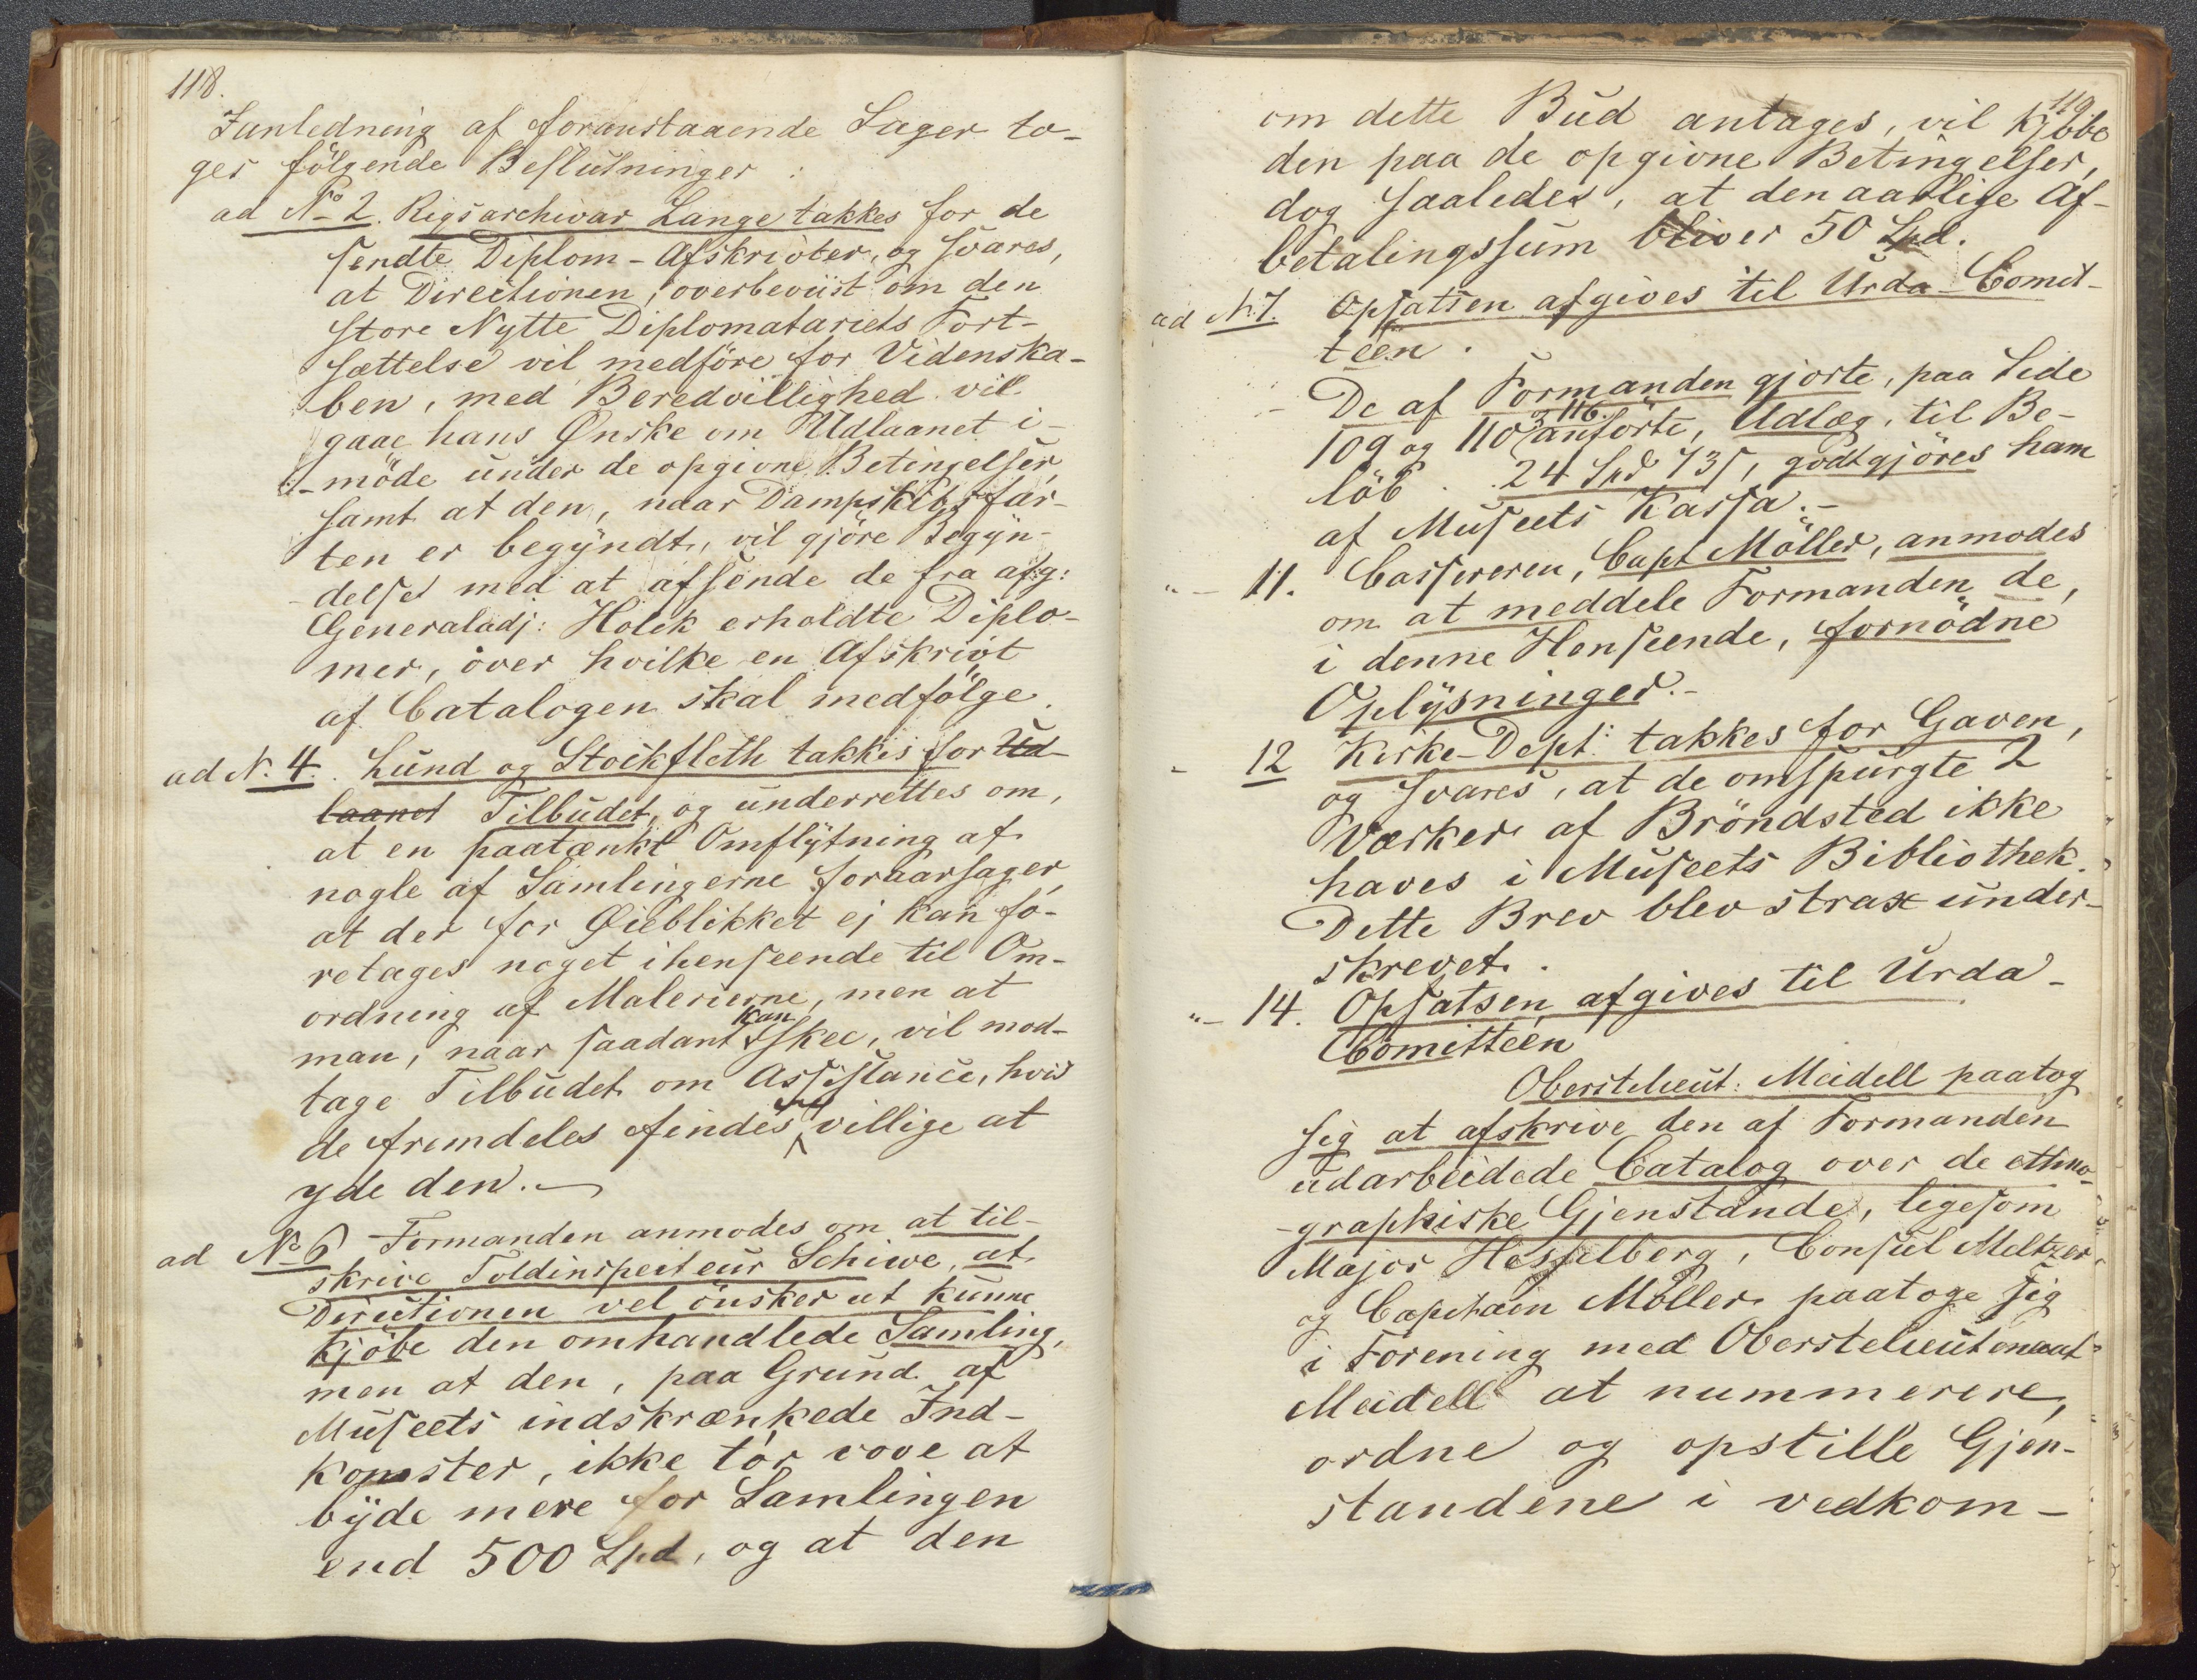 118.
Ianledning af foranstaaende Sager to-
ges følgende Beslutninger:
ad No 2. Rigsarchivar Lange takkes for de
sendte Diplom-Afskrivter, og svares,
at Directionen, overbeviist om den
store Nytte Diplomatariets Fort-
sættelse vil medföre for Videnska-
ben, med Beredvillighed vil
gaae hans Ønske om Udlaanet i-
-möde under de opgivne Betingelser,
samt at den, naar Dampskibsfar-
ten er begyndt, vil gjöre Begyn-
delse med at afsende de fra afg:
Generaladj: Holck erholdte Diplo-
mer, over hvilke en Afskrivt
af Catalogen skal medfölge.
ad N. 4. Lund og Stockfleth takkes for Ud-
laanet Tilbudet, og underrettes om,
at en paatænkt Omflytning af
nogle af Samlingerne foraarsager,
at der for Øieblikket ej kan fo-
retages noget ihenseende til Om-
ordning af Malerierne, men at
man, naar saadant kan skee, vil mod-
tage Tilbudet om Assistance, hvis
de fremdeles findes villige at
yde den.
ad No 6 Formanden anmodes om at til-
skrive Toldinspecteur Schiwe, at
Directionen vel önsker at kunne
kjöbe den omhandlede Samling,
men at den, paa Grund af
Museets indskrænkede Ind-
komster, ikke tör vove at
byde mere for Samlingen
end 500 Spd, og at den
119
om dette Bud antages, vil kjöbe
den paa de opgivne Betingelser,
dog saaledes, at den aarlige Af-
betalingssum bliver 50 Spd.
ad N. 7. Opsatsen afgives til Urda-Comit-
téen.
- De af Formanden gjorte, paa Side
109 og 110 og 116. anförte, Udlæg, til Be-
löb . . 24 Spd 73 s, godtgjöres ham
af Museets Kassa.-
"- 11. Cassereren, Capt Möller, anmodes
om at meddele Formanden de,
i denne Henseende, fornödne
Oplysninger.-
- 12 Kirke-Dept: takkes for Gaven,
og svares, at de omspurgte 2
Værker af Bröndsted ikke
haves i Museets Bibliothek.
Dette Brev blev strax under-
skrevet.
"- 14. Opsatsen afgives til Urda-
Comittéen
Oberstlieut: Meidell paatog
sig at afskrive den af Formanden
udarbeidede Catalog over de ethno-
-graphiske Gjenstande, ligesom
Major Hesselberg, Consul Meltzer
og Capitain Möller paatoge sig
i Forening med Oberstelieutenant
Meidell at nummerere,
ordne og opstille Gjen-
standene i vedkom-